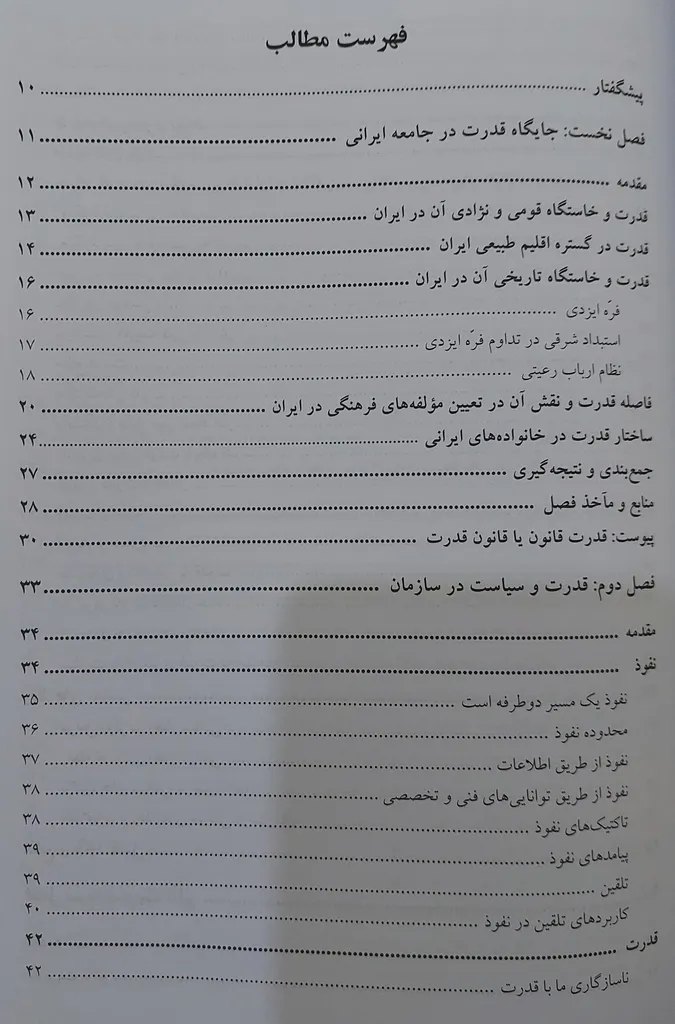 فهرست مطالب
پیشگفتار ........ ۱۰
فصل نخست: جایگاه قدرت در جامعه ایرانی ........ ۱۱
مقدمه ........ ۱۲
قدرت و خاستگاه قومی و نژادی آن در ایران ........ ۱۳
قدرت در گستره اقلیم طبیعی ایران ........ ۱۴
قدرت و خاستگاه تاریخی آن در ایران ........ ۱۶
فرّه ایزدی ........ ۱۶
استبداد شرقی در تداوم فرّه ایزدی ........ ۱۷
نظام ارباب رعیتی ........ ۱۸
فاصله قدرت و نقش آن در تعیین مؤلفه‌های فرهنگی در ایران ........ ۲۰
ساختار قدرت در خانواده‌های ایرانی ........ ۲۴
جمع‌بندی و نتیجه‌گیری ........ ۲۷
منابع و مآخذ فصل ........ ۲۸
پیوست: قدرت قانون یا قانون قدرت ........ ۳۰
فصل دوم: قدرت و سیاست در سازمان ........ ۳۳
مقدمه ........ ۳۴
نفوذ ........ ۳۴
نفوذ یک مسیر دوطرفه است ........ ۳۵
محدوده نفوذ ........ ۳۶
نفوذ از طریق اطلاعات ........ ۳۷
نفوذ از طریق توانایی‌های فنی و تخصصی ........ ۳۸
تاکتیک‌های نفوذ ........ ۳۸
پیامدهای نفوذ ........ ۳۹
تلقین ........ ۳۹
کاربردهای تلقین در نفوذ ........ ۴۰
قدرت ........ ۴۲
ناسازگاری ما با قدرت ........ ۴۲